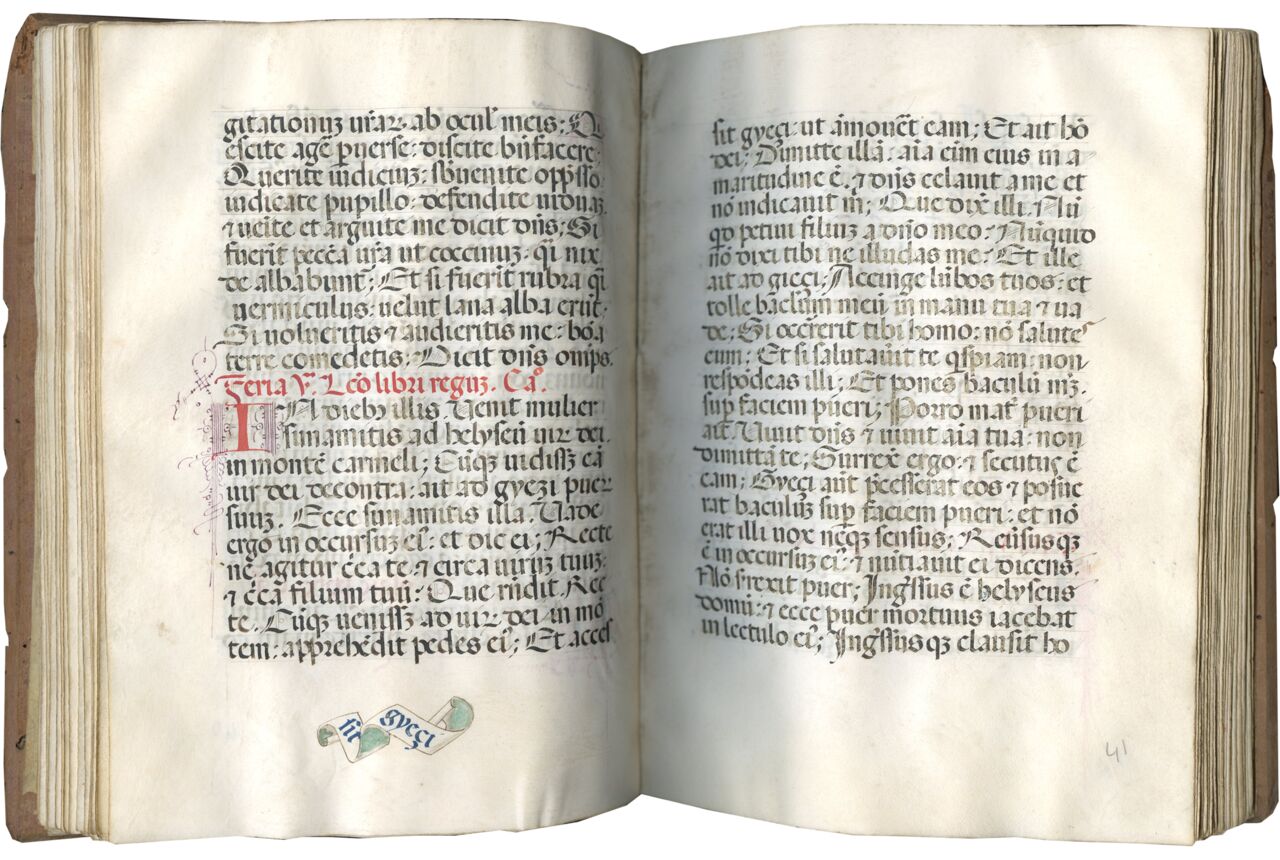 gitationuȝ vr̃ar᷑ ab ocul' meis; Qu
escite age puerse: discite bn̄facere:
Querite iudiciuȝ: sbuenite opp̄sso:
iudicate pupillo: defendite viduaȝ.
⁊ ueīte et arguite me dicit dn̄s; Si
fuerīt pecc̄a vr̄a ut coccinuȝ: q̄i nix
de albabunt᷑; Et si fuerīt rubra q̄i
uermiculus: uelut lana alba erūt:
Si uolueritis ⁊ audieritis me: bōa
terre comedetis: Dicit dn̄s omp̄s.
Feria v.ᵃ Lc̄o libri reguȝ. Ca.º
IN diebꝫ illis. Uenit mulier
sunamitis ad helyseū uir dei.
in monte carmeli; Cūqꝫ uidissꝫ eā
uir dei decontra: ait ad gyezi puer
suuȝ. Ecce sunamitis illa. Uade
ergo in occursuȝ ei᷒: et dic ei; Recte
ne agitur c̄ca te ⁊ circa uiruȝ tuuȝ:
⁊ c̄ca filium tuū: Que rn̄dit. Rec
te. Cūqꝫ uenissꝫ ad uir᷑ dei in mō
tem: apprehēdit pedes ei᷒; Et acces
sit gyeçi
sit gyeçi: ut āmouēt eam; Et ait hō
dei; Dimitte illā. aīa eīm eius in a
maritudine ē. ⁊ dn̄s celauit a me et
nō indicauit m̄; Que dix̄ illi. Nū
qd petiui filiuȝ a dn̄o meo: Nūquid
nō dixi tibi ne illudas me: Et ille
ait ad gieçi: Accinge lūbos tuos: et
tolle bac̄lum meū in manu tua ⁊ ua
de; Si occr̄erit tibi homo: nō salutes
eum: Et si salutaūit te qspiam: non
respōdeas illi; Et pones baculū mȝ.
suꝑ faciem pueri; Porro mat᷑ pueri
ait. Uiuit dn̄s ⁊ uiuit aīa tua: non
dimittā te; Surrex̄ ergo ⁊ secutus ē
eam; Gyeçi aūt p̄cesserat eos ⁊ posue
rat baculuȝ suꝑ faciem pueri: et nō
erat illi uox neqꝫ sensus; Reūsusqꝫ
ē in occursuȝ ei᷒: ⁊ nūtiauit ei dicens.
Nō srexit puer; Ingssus ē helyseus
domū: ⁊ ecce puer mortuus iacebat
in lectulo ei᷒; Ingssusqꝫ clausit ho
41